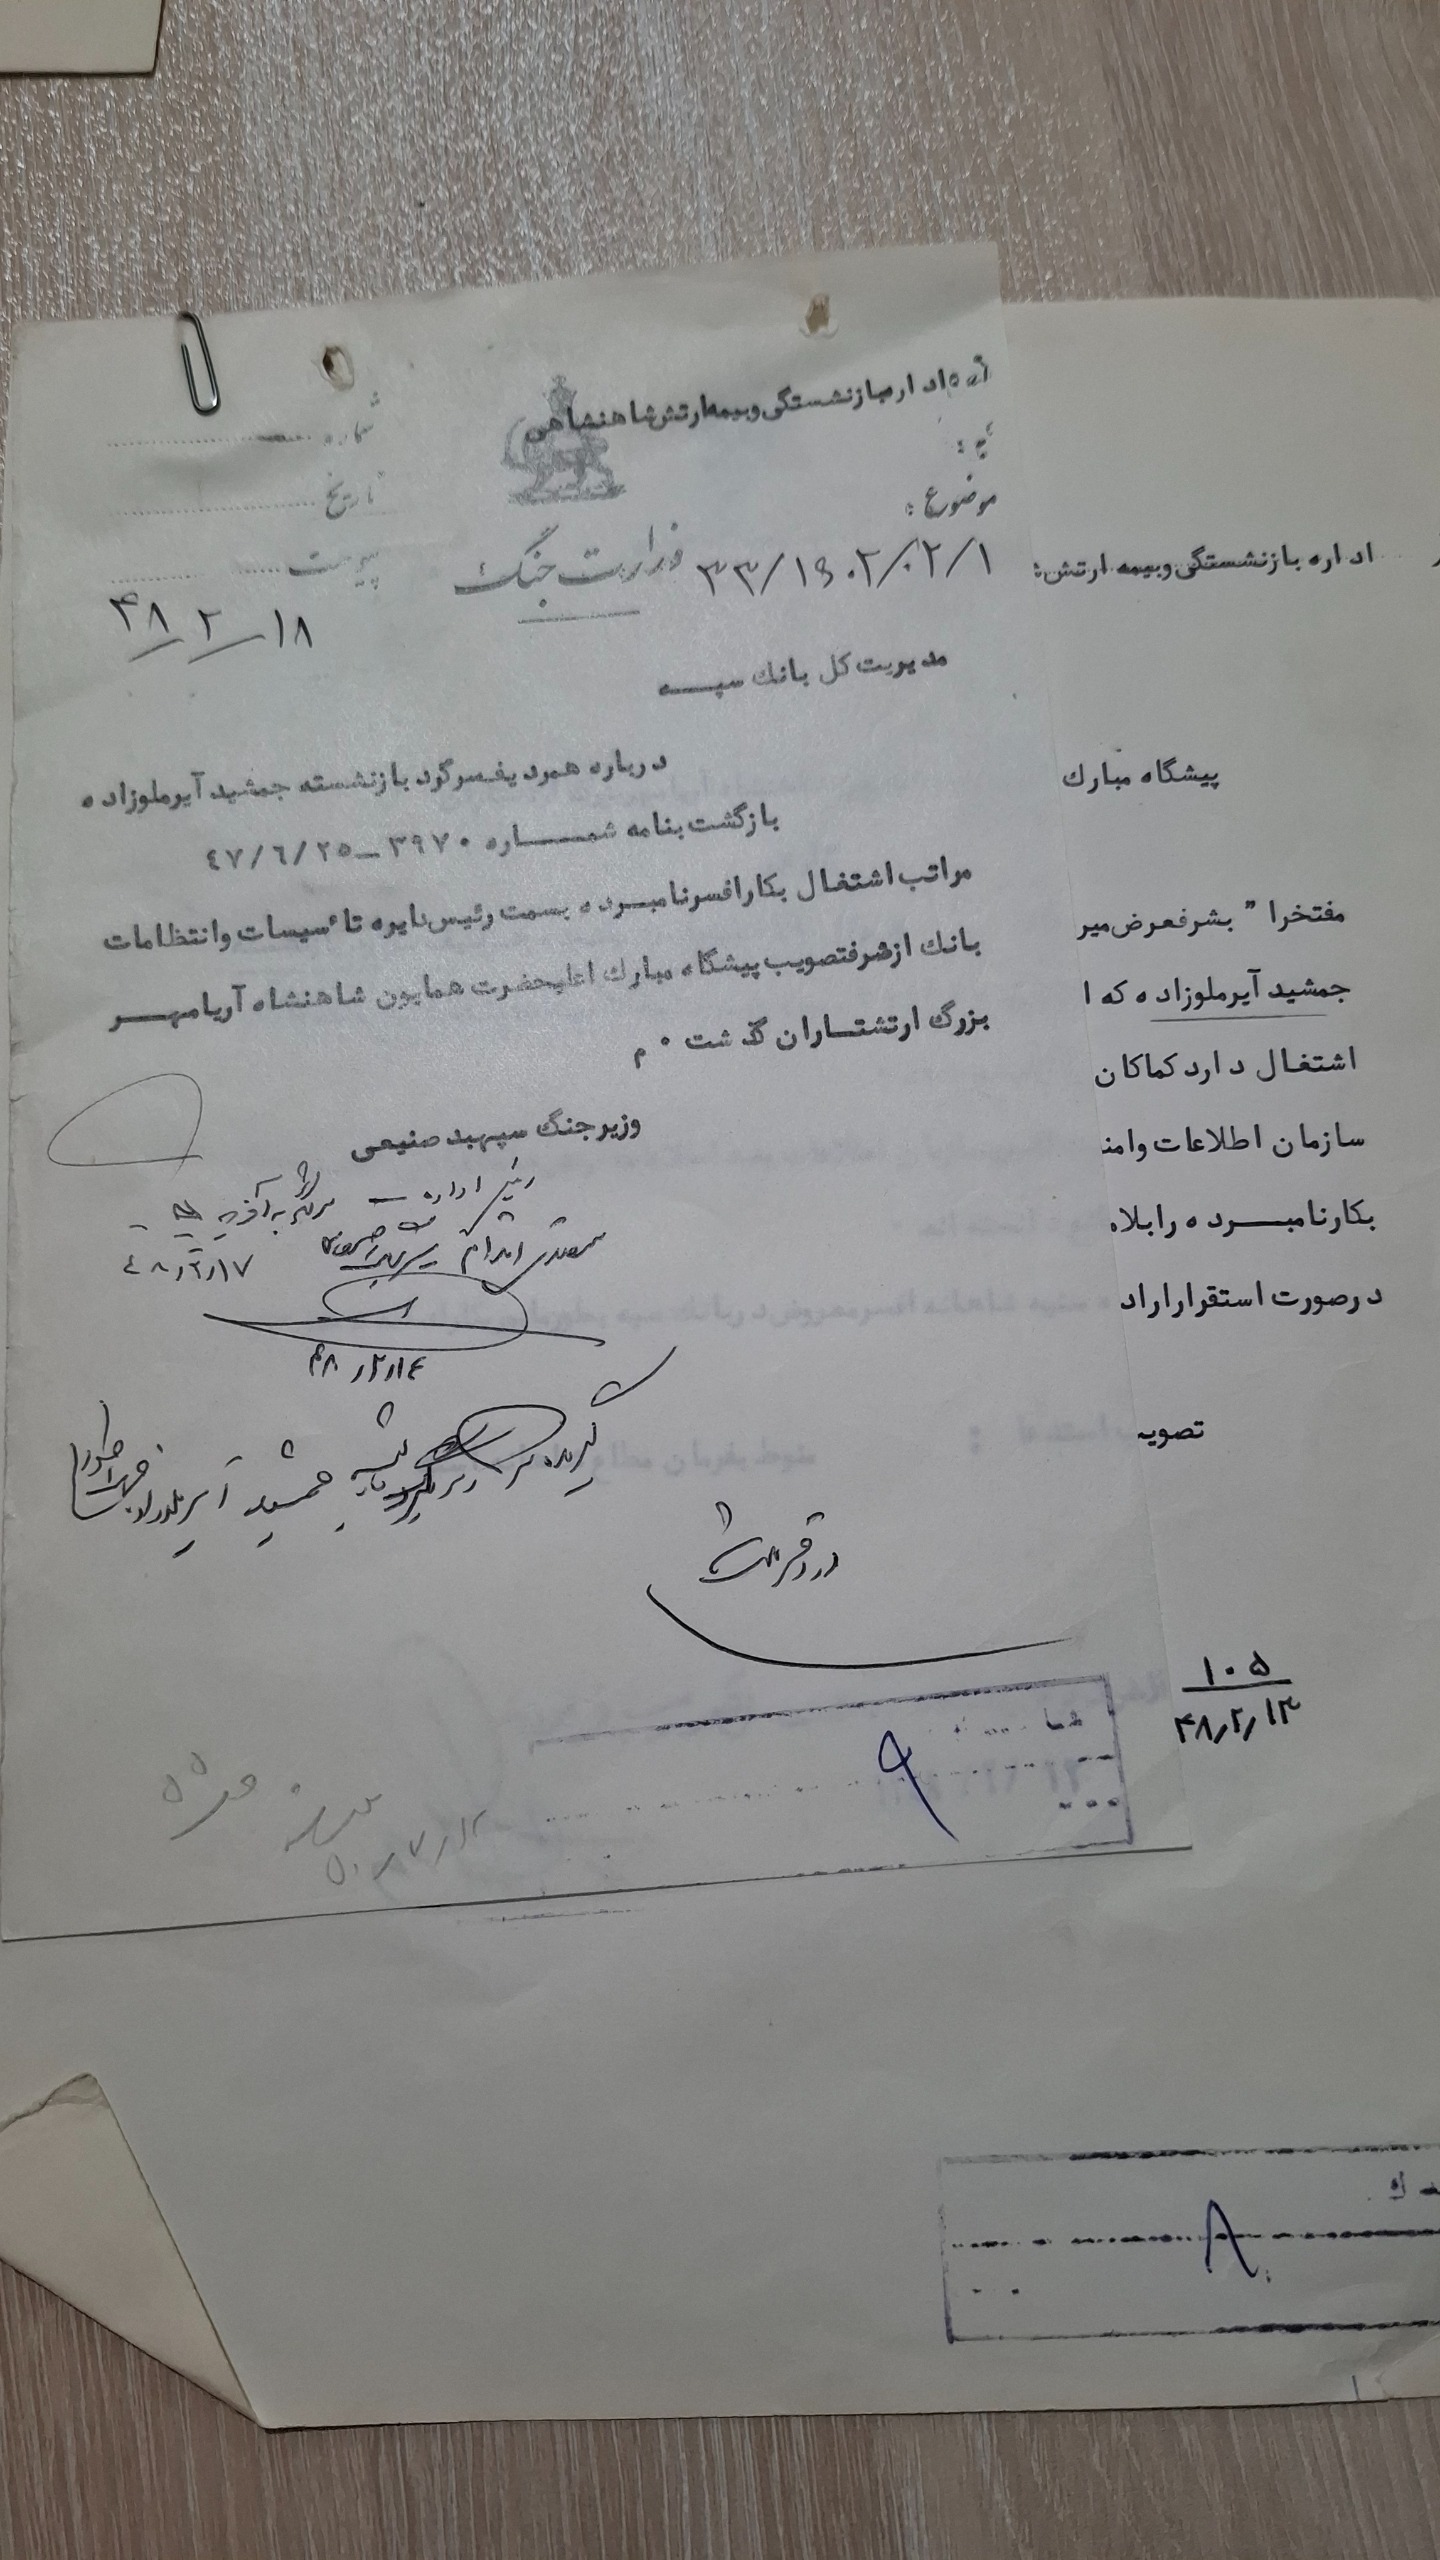 اداره بازنشستگی و بیمه ارتش شاهنشاهی
شماره
تاریخ
موضوع :
پیوست
وزارت جنگ
۳۳/۱۶۰۲/۰۲/۱
۴۸/۲/۱۸
مدیریت کل بانك سپـــه
درباره همردیف سرگرد بازنشسته جمشید آیرملوزاده
بازگشت بنامه شمـــاره ۳۹۷۰ ــ ۴۷/۶/۲۵
مراتب اشتغال بکار افسر نامبـرده بسمت رئیس دایره تاءسیسات وانتظامات
بانك از شرفتصویب پیشگاه مبارك اعلیحضرت همایون شاهنشاه آریامهـــر
بزرگ ارتشتــاران گذشت ۰ م
وزیر جنگ سپهبد صنیعی
رئیس اداره
۴۸/۲/۱۷
۴۸/۲/۱۴
جمشید آیرملوزاده
۵۰/۷/۱۲
شما
۹
اداره بازنشستگی و بیمه ارتش
پیشگاه مبارك
مفتخرا " بشرفعرض میر
جمشید آیرملوزاده که ا
اشتغال دارد کماکان
سازمان اطلاعات وامنـ
بکار نامبـــرده را بلا
درصورت استقرار اراد
تصویـ
۱۰۵
۴۸/۲/۱۳
۸